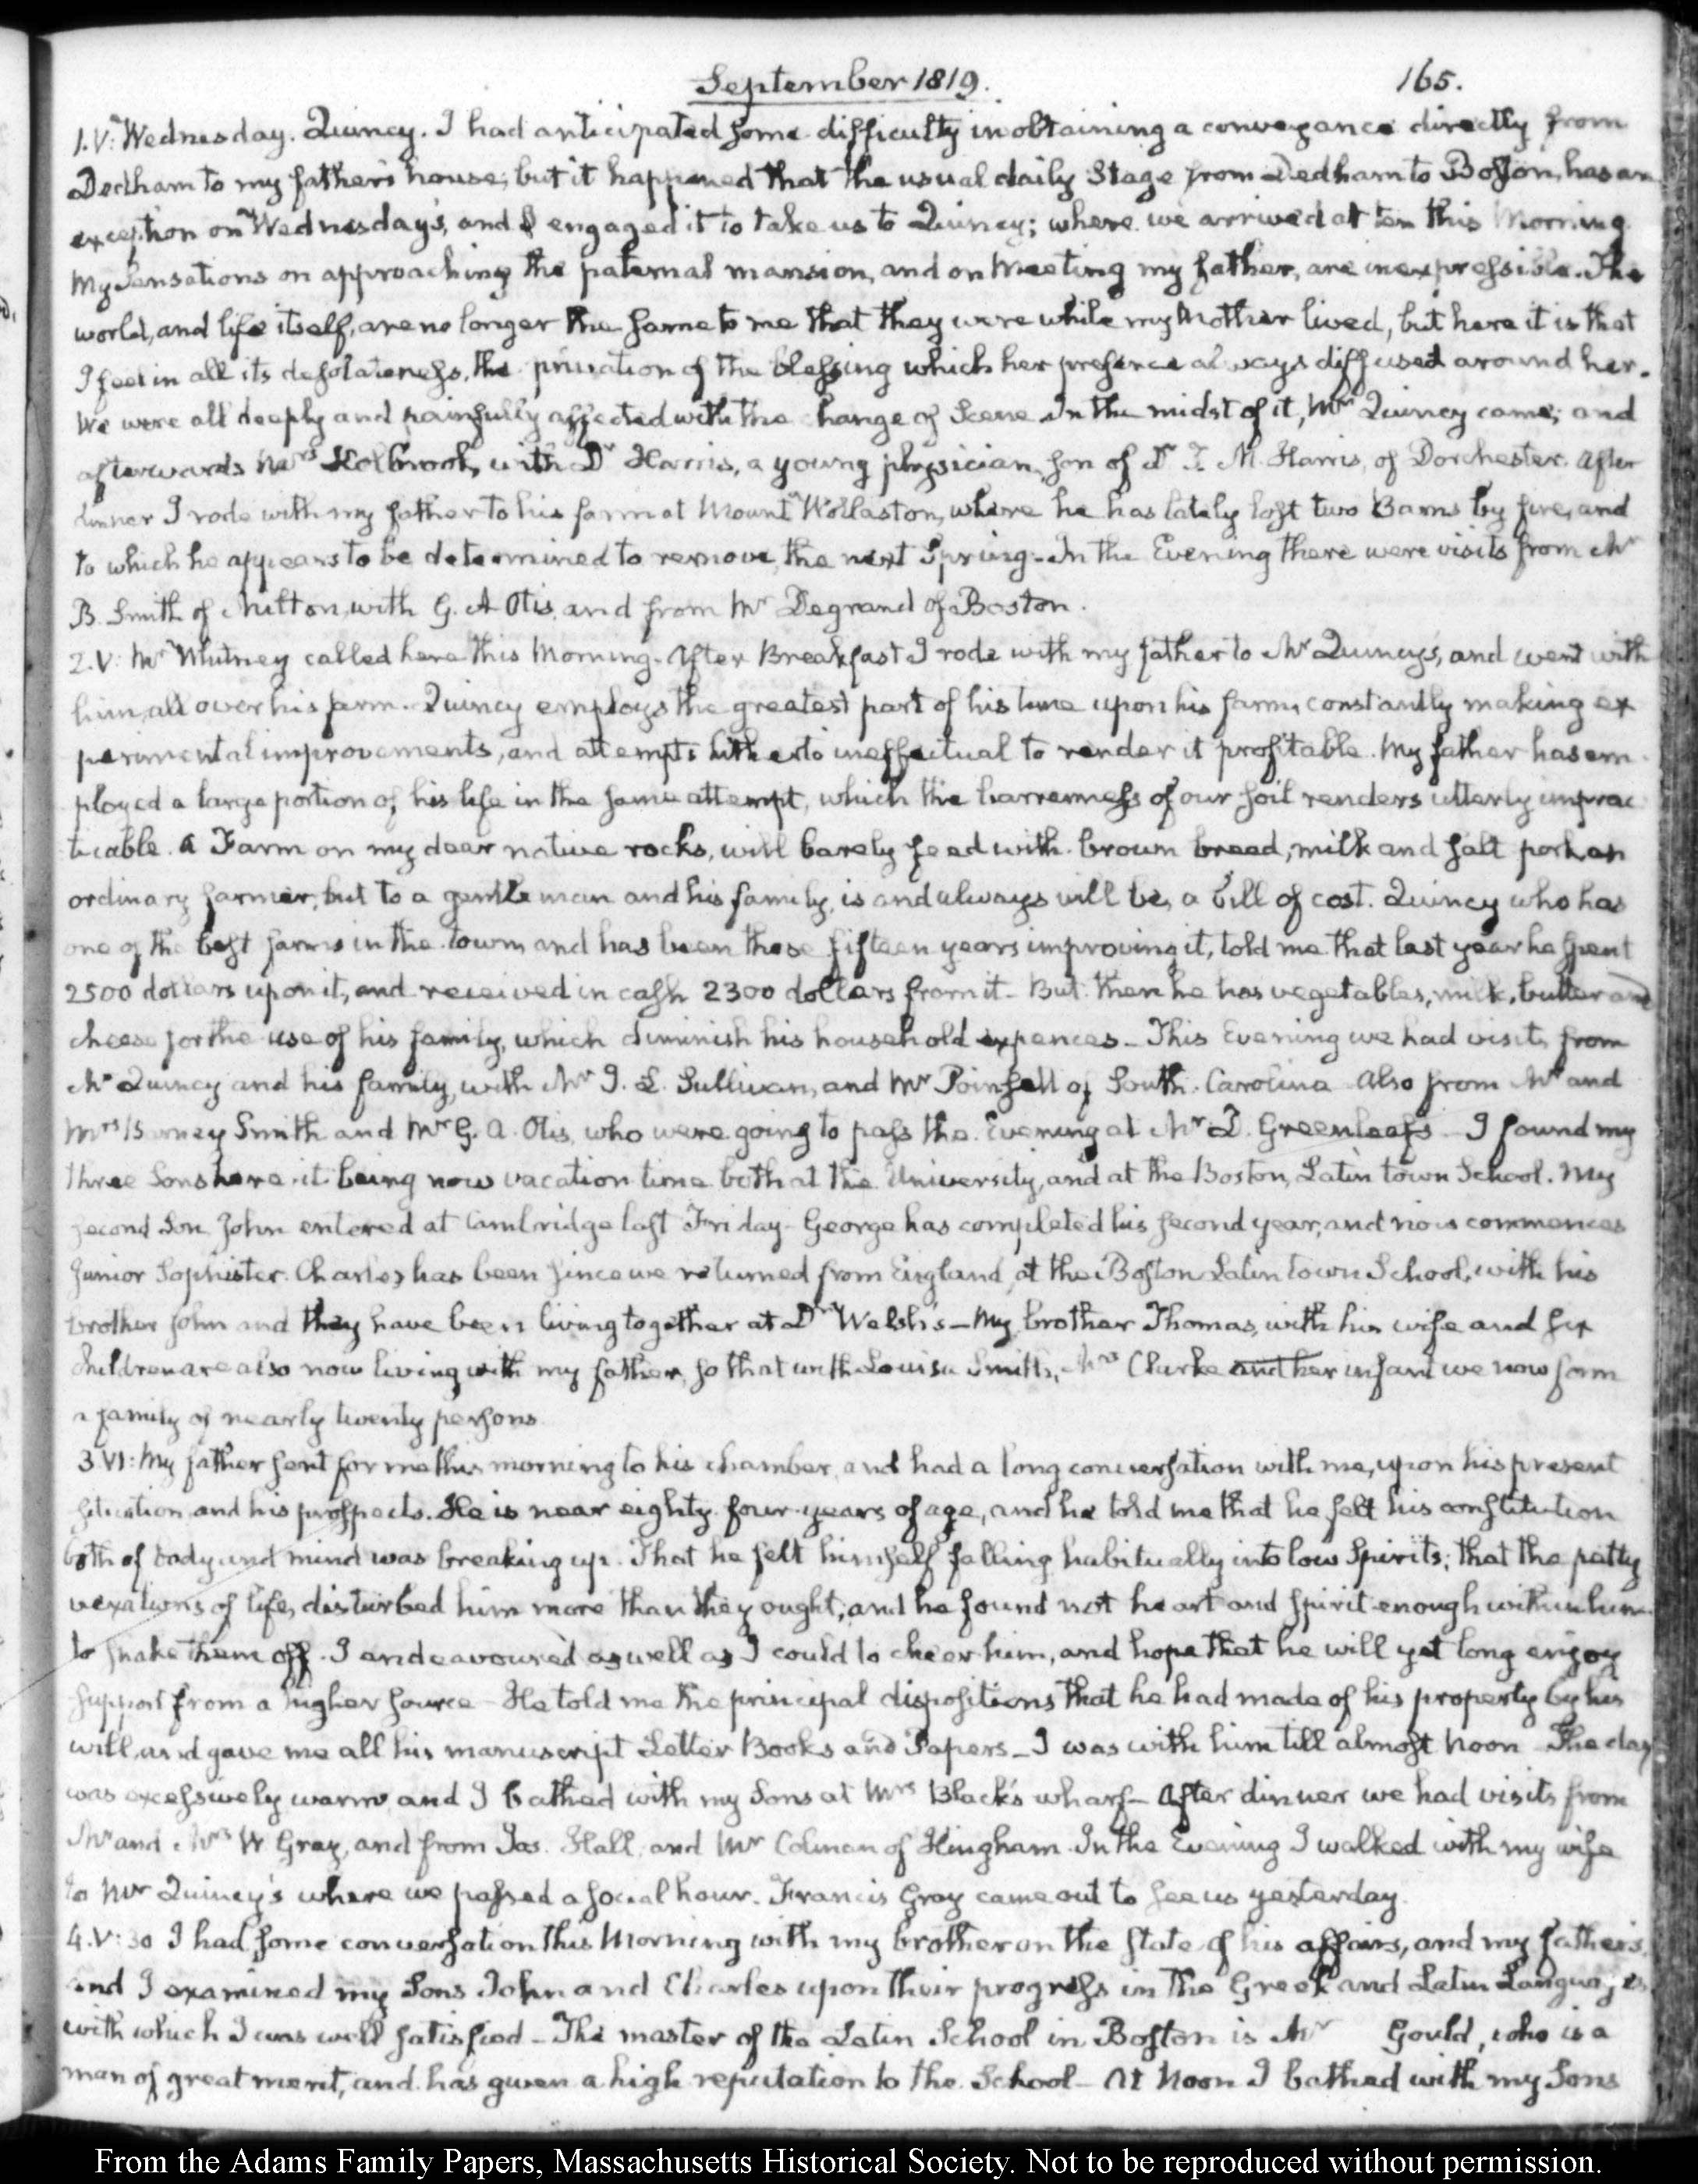 September 1819.
165.
1. V: Wednesday. Quincy. I had anticipated some difficulty in obtaining a conveyance directly from
Dedham to my father's house; but it happened that the usual daily Stage from Dedham to Boston, has an
exception on Wednesday's, and I engaged it to take us to Quincy; where we arrived at ten this Morning.
My Sensations on approaching the paternal mansion, and on meeting my father, are inexpressible. The
world, and life itself, are no longer the same to me that they were while my Mother lived, but here it is that
I feel in all its desolateness, the privation of the blessing which her presence always diffused around her.
We were all deeply and painfully affected with the change of Scene. In the midst of it, Mr Quincy came; and
afterwards Mrs Holbrook, with Dr Harris, a young physician, son of Dr T. M. Harris, of Dorchester. After
dinner I rode with my father to his farm at Mount Wollaston, where he has lately lost two Barns by fire, and
to which he appears to be determined to remove, the next Spring. In the Evening there were visits from Mr
B. Smith of Milton, with G. A Otis, and from Mr Degrand of Boston.
2. V: Mr Whitney called here this Morning. After Breakfast I rode with my father to Mr Quincy's, and went with
him, all over his farm. Quincy employs the greatest part of his time upon his farm, constantly making ex
perimental improvements, and attempts hitherto ineffectual to render it profitable. My father has em
ployed a large portion of his life in the same attempt, which the barrenness of our soil renders utterly imprac
ticable. A Farm on my dear native rocks, will barely feed with brown bread, milk and salt pork, an
ordinary farmer, but to a gentleman and his family, is and always will be, a bill of cost. Quincy who has
one of the best farms in the town and has been these fifteen years improving it, told me that last year he spent
2500 dollars upon it, and received in cash 2300 dollars from it. But then he has vegetables, milk, butter and
cheese for the use of his family, which diminish his household expences. This Evening we had visits from
Mr Quincy and his family, with Mr J. L. Sullivan, and Mr Poinsett of South Carolina. Also from Mr and
Mrs Barney Smith and Mr G. A. Otis, who were going to pass the Evening at Mr D. Greenleaf's. I found my
three Sons here, it being now vacation time both at the University, and at the Boston, Latin town School. My
second Son John entered at Cambridge last Friday. George has completed his second year, and now commences
junior Sophister. Charles has been since we returned from England, at the Boston Latin town School, with his
brother John and they have been living together at Dr Welsh's - My brother Thomas, with his wife and six
children are also now living with my father, so that with Louisa Smith, Mrs Clarke and her infant we now form
a family of nearly twenty persons.
3. VI: My father sent for me this morning to his chamber, and had a long conversation with me, upon his present
situation and his prospects. He is near eighty four years of age, and he told me that he felt his constitution
both of body and mind was breaking up. That he felt himself falling habitually into low Spirits; that the petty
vexations of life, disturbed him more than they ought; and he found not heart and spirit enough within him
to shake them off. I endeavoured as well as I could to cheer him, and hope that he will yet long enjoy
support from a higher source - He told me the principal dispositions that he had made of his property by his
will, and gave me all his manuscript Letter Books and Papers - I was with him till almost Noon. The day
was excessively warm, and I bathed with my Sons at Mrs Black's wharf - After dinner we had visits from
Mr and Mrs W Gray, and from Jos. Hall, and Mr Colman of Hingham. In the Evening I walked with my wife
to Mr Quincy's where we passed a social hour. Francis Gray came out to see us yesterday.
4. V:30 I had some conversation this Morning with my brother on the state of his affairs, and my father's,
and I examined my Sons John and Charles upon their progress in the Greek and Latin Languages,
with which I was well satisfied - The master of the Latin School in Boston is Mr Gould, who is a
man of great merit, and has given a high reputation to the School - At Noon I bathed with my Sons
From the Adams Family Papers, Massachusetts Historical Society. Not to be reproduced without permission.